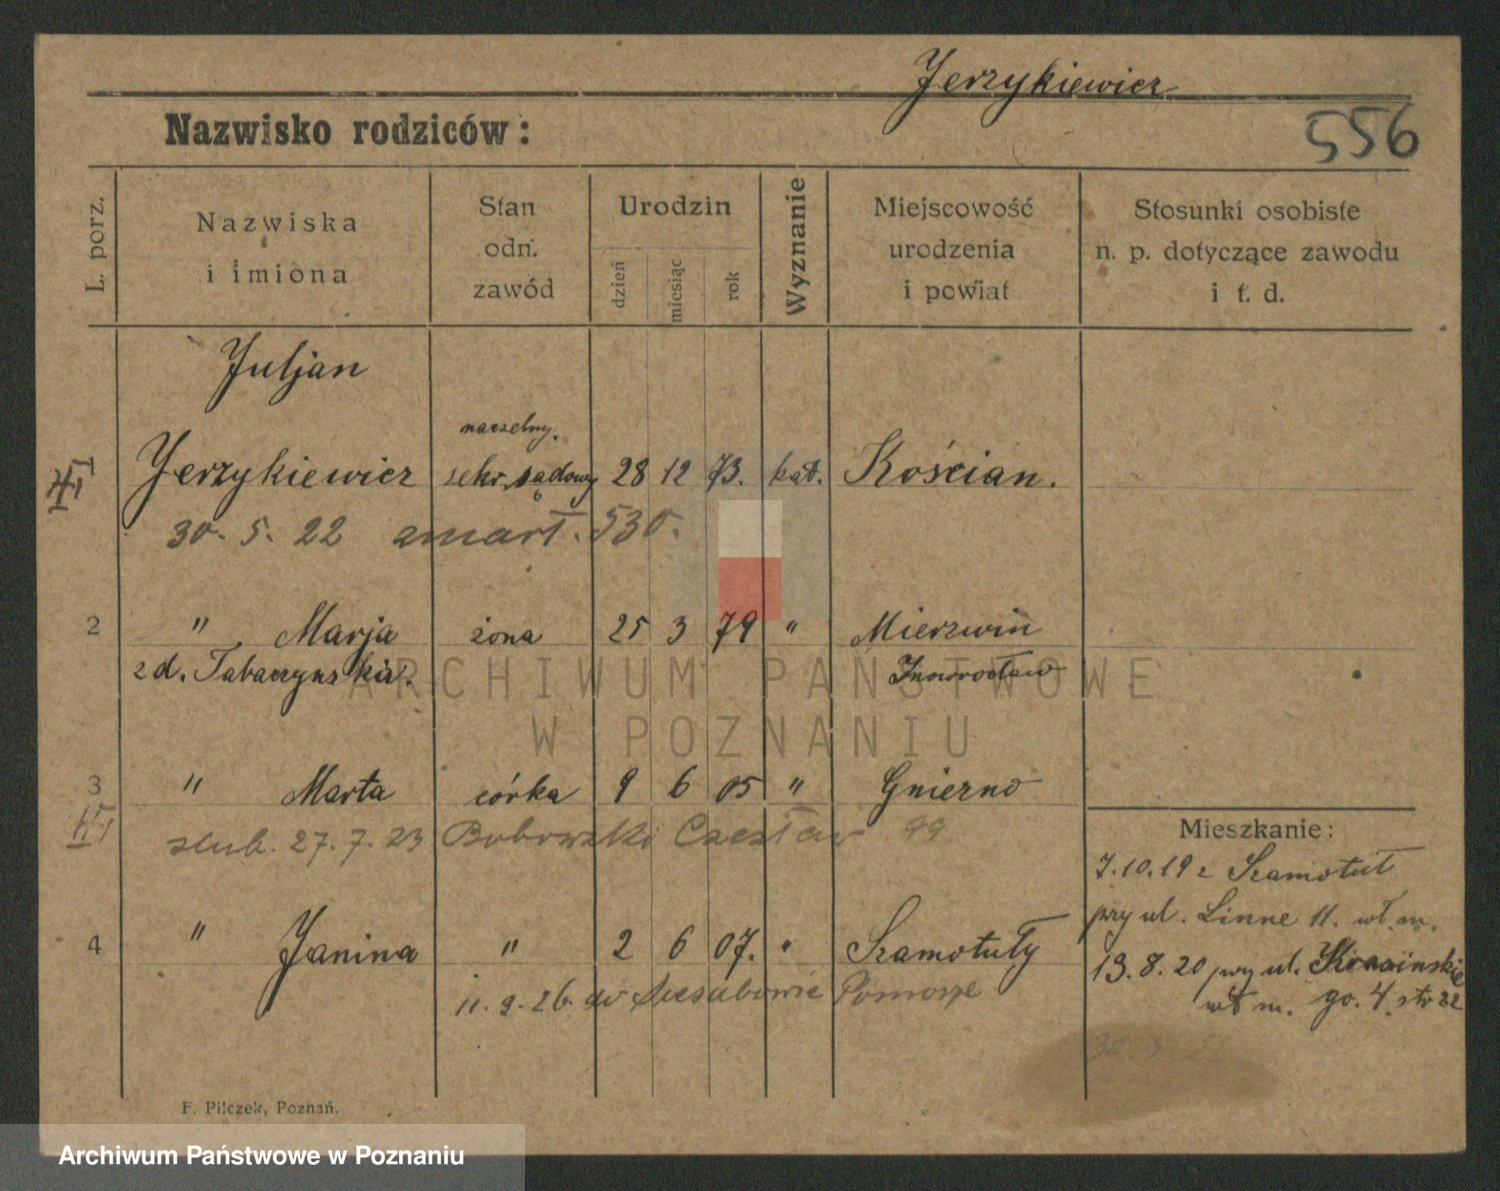 Jerzykiewicz
Nazwisko rodziców:
556
L. porz.
Nazwiska
i imiona
Stan
odn.
zawód
Urodzin
dzień
miesiąc
rok
Wyznanie
Miejscowość
urodzenia
i powiat
Stosunki osobiste
n. p. dotyczące zawodu
i t. d.
Juljan
naczelny.
1 Jerzykiewicz sekr. sądowy 28 12 73. kat. Kościan.
30. 5. 22 zmarł. 530.
2 " Marja żona 25 3 79 " Mierzwin
z d. Tabaczyńska. Inowrocław
ARCHIWUM PAŃSTWOWE
W POZNANIU
3 " Marta córka 9 6 05 " Gniezno
slub. 27. 7. 23 Bobowski Czesław 99
Mieszkanie:
7.10.19 z Szamotuł
przy ul. Linne 11. wł. m.
4 " Janina " 2 6 07. " Szamotuły
13. 8. 20 przy ul. Krasińskie
go. 4. str 22
wł m.
11. 9. 26. do Pomorze
F. Pilczek, Poznań.
Archiwum Państwowe w Poznaniu